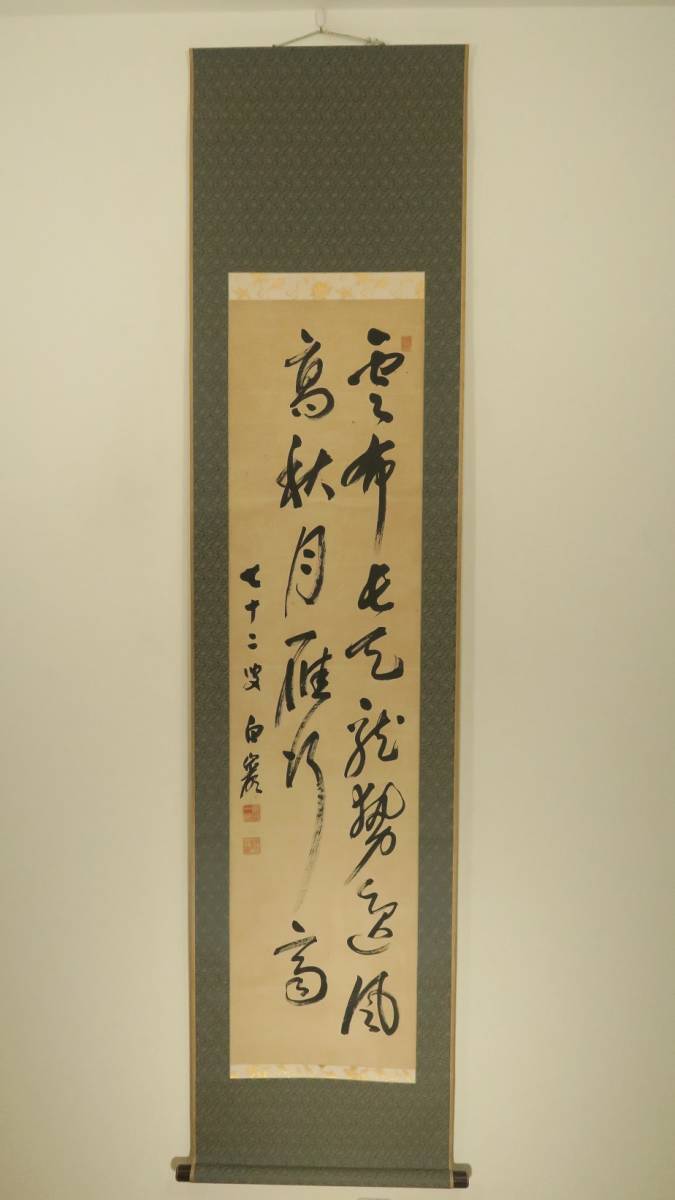 雲布長天龍勢遠風
高秋月雁行齊
七十二叟 白